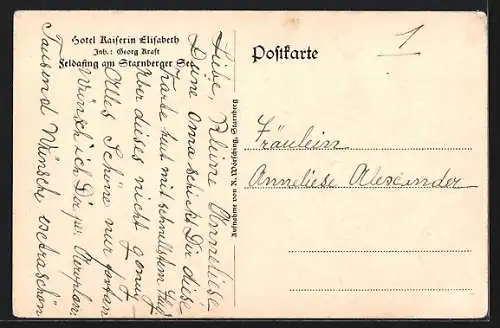 Hotel Kaiserin Elisabeth
Inh.: Georg Kraft
Feldafing am Starnberger See
Postkarte
1
Liebe, kleine Anneliese
Deine Oma schickt Dir diese
Karte heut mit schnellstem
Aber dieses nicht genug
Alles Schöne nur fortan
Wünsch ich Dir per Aeroplan:
Tausend Wünsche
Aufnahme von R. Wörsching, Starnberg
Fräulein
Anneliese Alexander